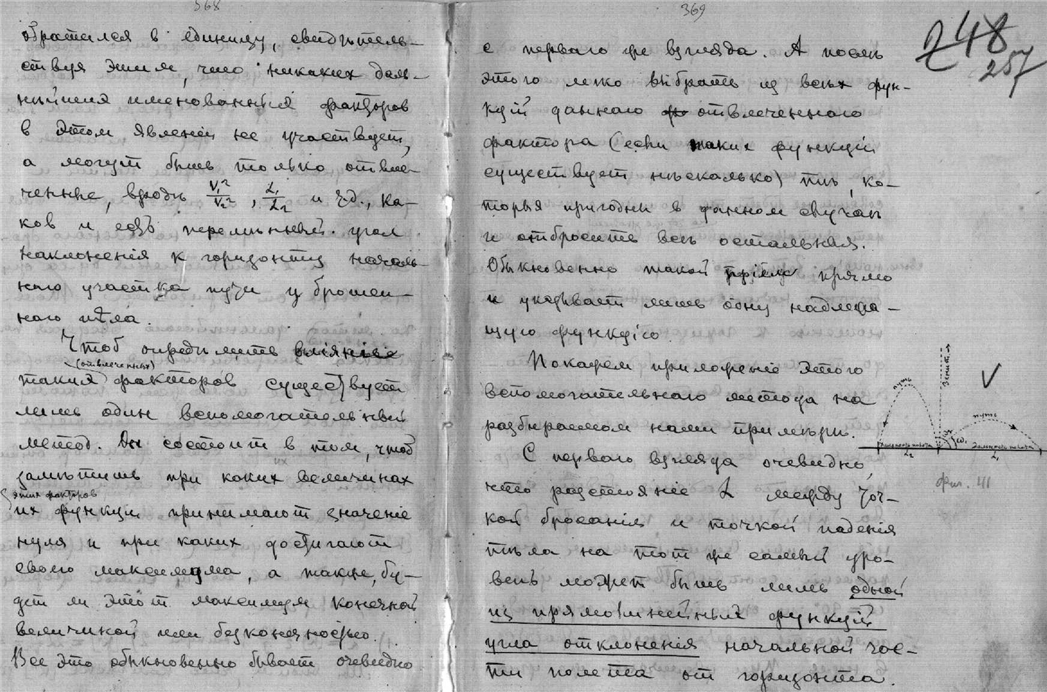 368
обратился в единицу, свидѣтель-
ствуя этим, что никаких даль-
нѣйших именованных факторов
в этом явленiи не участвует,
а могут быть только отвле-
ченные, вродѣ V₁²/V₂², L₁/L₂ и т.д., ка-
ков и есть перемѣнный угол
наклоненiя к горизонту началь-
ного участка пути у брошен-
ного тѣла.
Чтоб опредѣлить влiянiе
(отвлеченных)
таких факторов существует
лишь один вспомогательный
метод. Он состоит в том, чтоб
замѣтить при каких величинах
этих факторов
их функцiи принимают значенiе
нуля и при каких достигают
своего максимума, а также, бу-
дет ли этот максимум конечной
величиной или безконечностью.
Все это обыкновенно бывает очевидно
369
248
257
с перваго же взгляда. А послѣ
этого легко выбрать из всѣх фун-
кцiй даннаго отвлеченнаго
фактора (если таких функцiй
существует нѣсколько) тѣ, ко-
торыя пригодны в данном случаѣ
и отбросить всѣ остальныя.
Обыкновенно такой прiем прямо
и указывает лишь одну надлежа-
щую функцiю.
Покажем приложенiе этого
вспомогательнаго метода на
разбираемом нами примѣрѣ.
С перваго взгляда очевидно,
что разстоянiе L между точ-
кой бросанiя и точкой паденiя
тѣла на тот же самый уро-
вень может быть лишь одной
из прямолинейных функцiй
угла отклоненiя начальной час-
ти полета от горизонта.
Зенит
путь
путь
L₂
L₁
Фиг. III